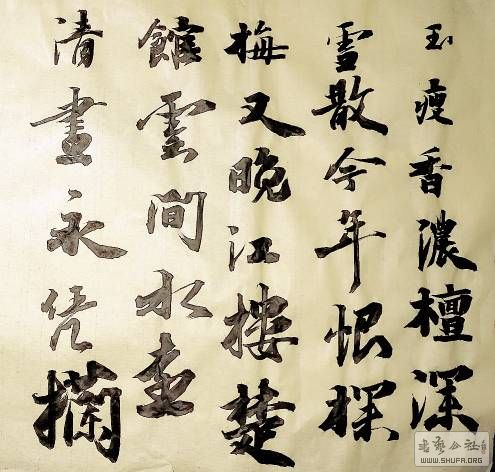 玉瘦香濃檀深
雪散今年恨探
梅又晚江樓楚
館雲間水遠
清晝永凭攔
書藝公社
WWW.SHUFA.ORG